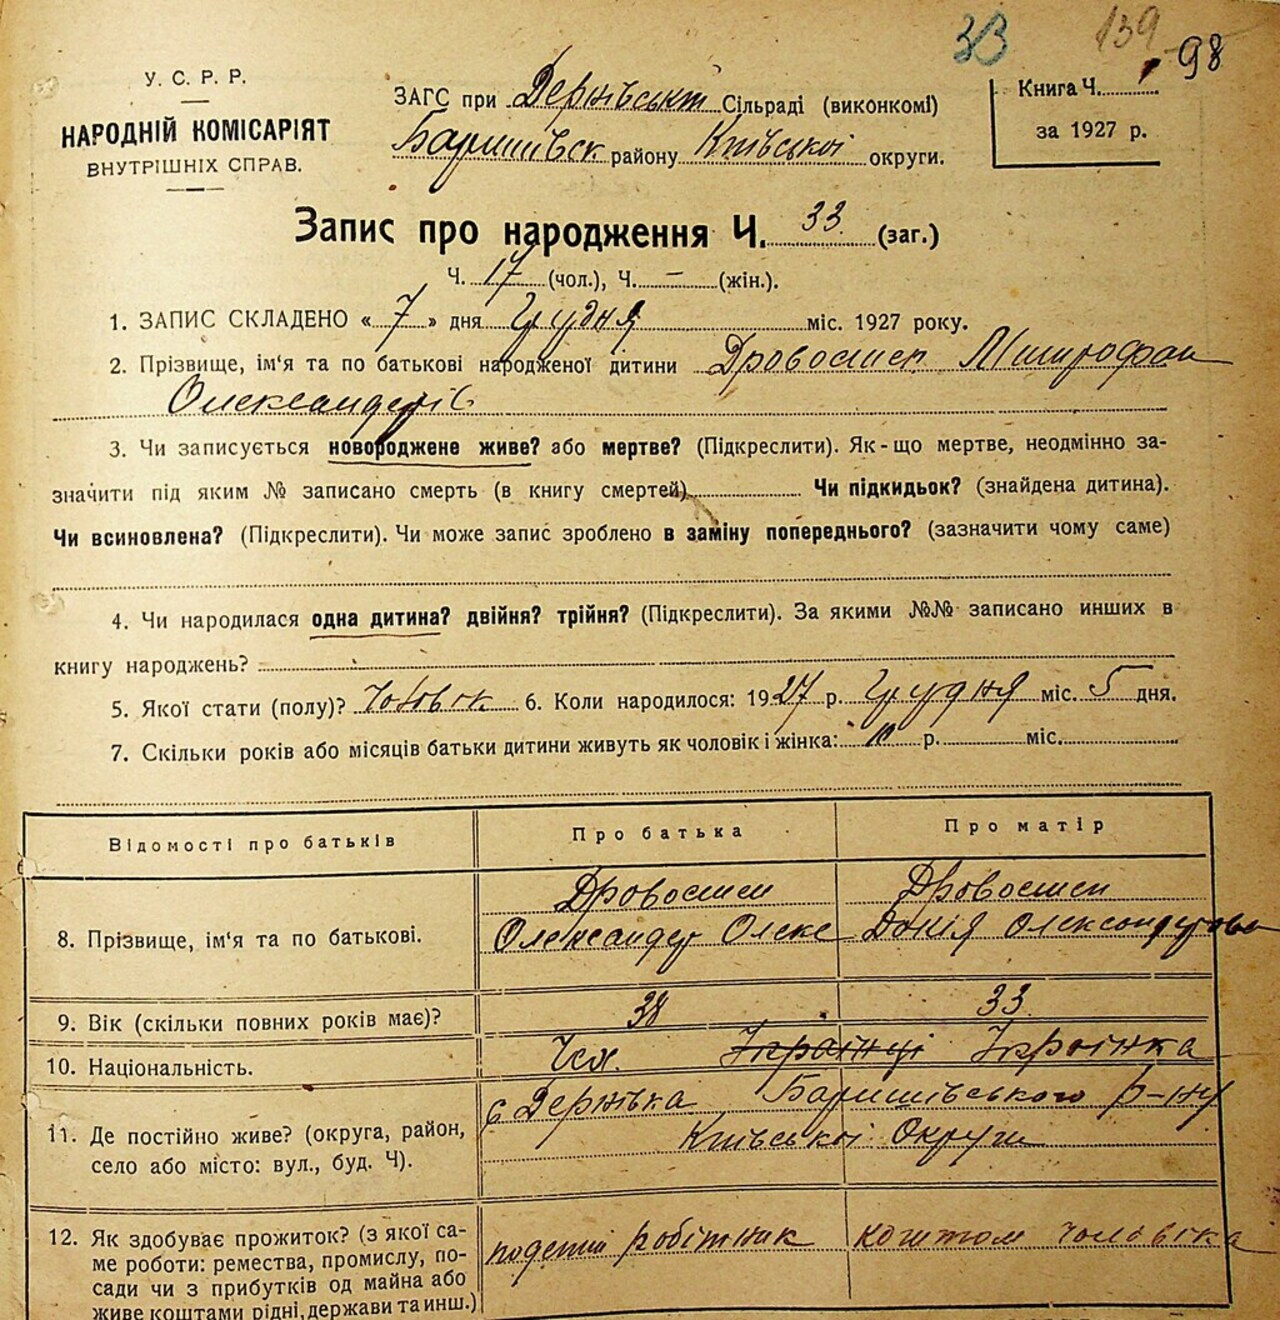 33 139 98
У. С. Р. Р.
НАРОДНІЙ КОМІСАРІЯТ
ВНУТРІШНІХ СПРАВ.
ЗАГС при Дернівській Сільраді (виконкомі)
Баришівск району Київської округи.
Книга Ч.
за 1927 р.
Запис про народження Ч. 33 (заг.)
Ч. 17 (чол.), Ч. — (жін.).
1. ЗАПИС СКЛАДЕНО « 7 » дня Грудня міс. 1927 року.
2. Прізвище, ім'я та по батькові народженої дитини Митрофан
Олександрів
3. Чи записується новороджене живе? або мертве? (Підкреслити). Як-що мертве, неодмінно за-
значити під яким № записано смерть (в книгу смертей) Чи підкидьок? (знайдена дитина).
Чи всиновлена? (Підкреслити). Чи може запис зроблено в заміну попереднього? (зазначити чому саме)
4. Чи народилася одна дитина? двійня? трійня? (Підкреслити). За якими №№ записано инших в
книгу народжень?
5. Якої стати (полу)? Чоловік 6. Коли народилося: 1927 р. Грудня міс. 5 дня.
7. Скільки років або місяців батьки дитини живуть як чоловік і жінка: р. міс.
Відомості про батьків Про батька Про матір
8. Прізвище, ім'я та по батькові.
Олександер Олекс Олександрова
9. Вік (скільки повних років має)? 38 33
10. Національність. Українці Українка
11. Де постійно живе? (округа, район,
село або місто: вул., буд. Ч).
с Дернівка Баришівського р-ну
Київської Округи
12. Як здобуває прожиток? (з якої са-
ме роботи: ремества, промислу, по-
сади чи з прибутків од майна або
живе коштами рідні, держави та инш.)
поденний робітник коштом чоловіка